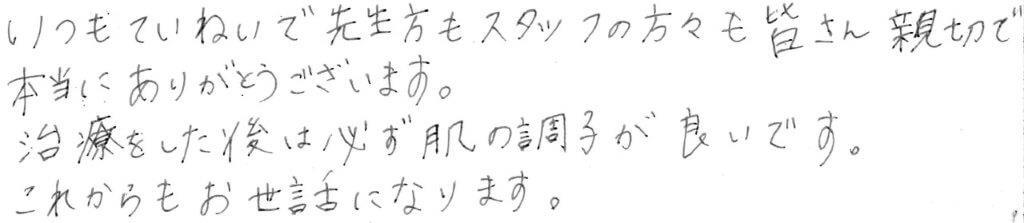 いつもていねいで先生方もスタッフの方々も皆さん親切で
本当にありがとうございます。
治療をした後は必ず肌の調子が良いです。
これからもお世話になります。